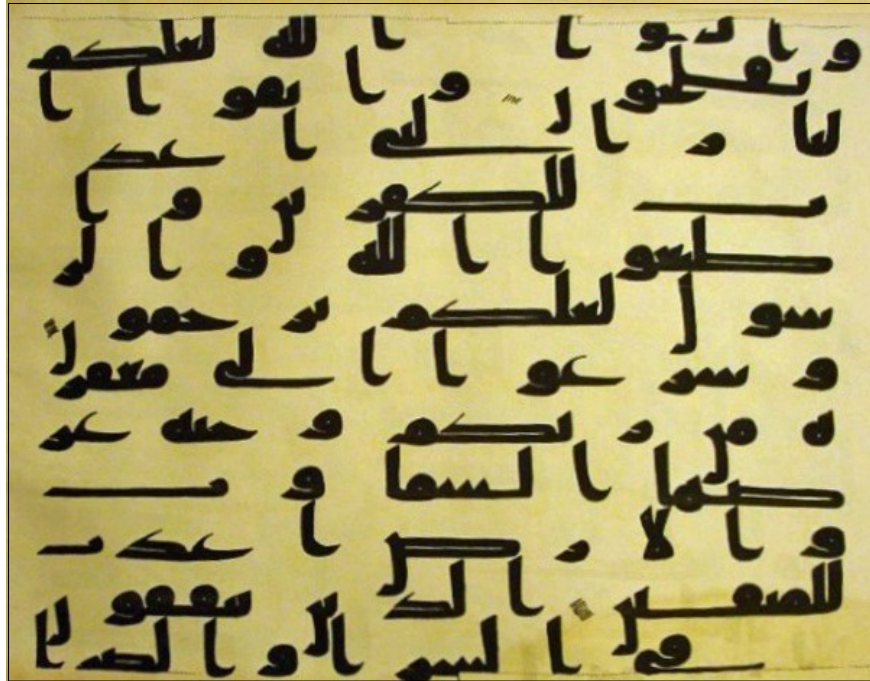 واتقوا الله لعلكم
تفلحون واتقوا ا
لنار التي اعد
ت للكفرين وا
طيعوا الله والر
سول لعلكم ترحمون
وسرعوا الى مغفر
ة من ربكم وجنة عر
ضها السموت
والارض اعدت
للمتقين الذين ينفقون
في السرا والضرا